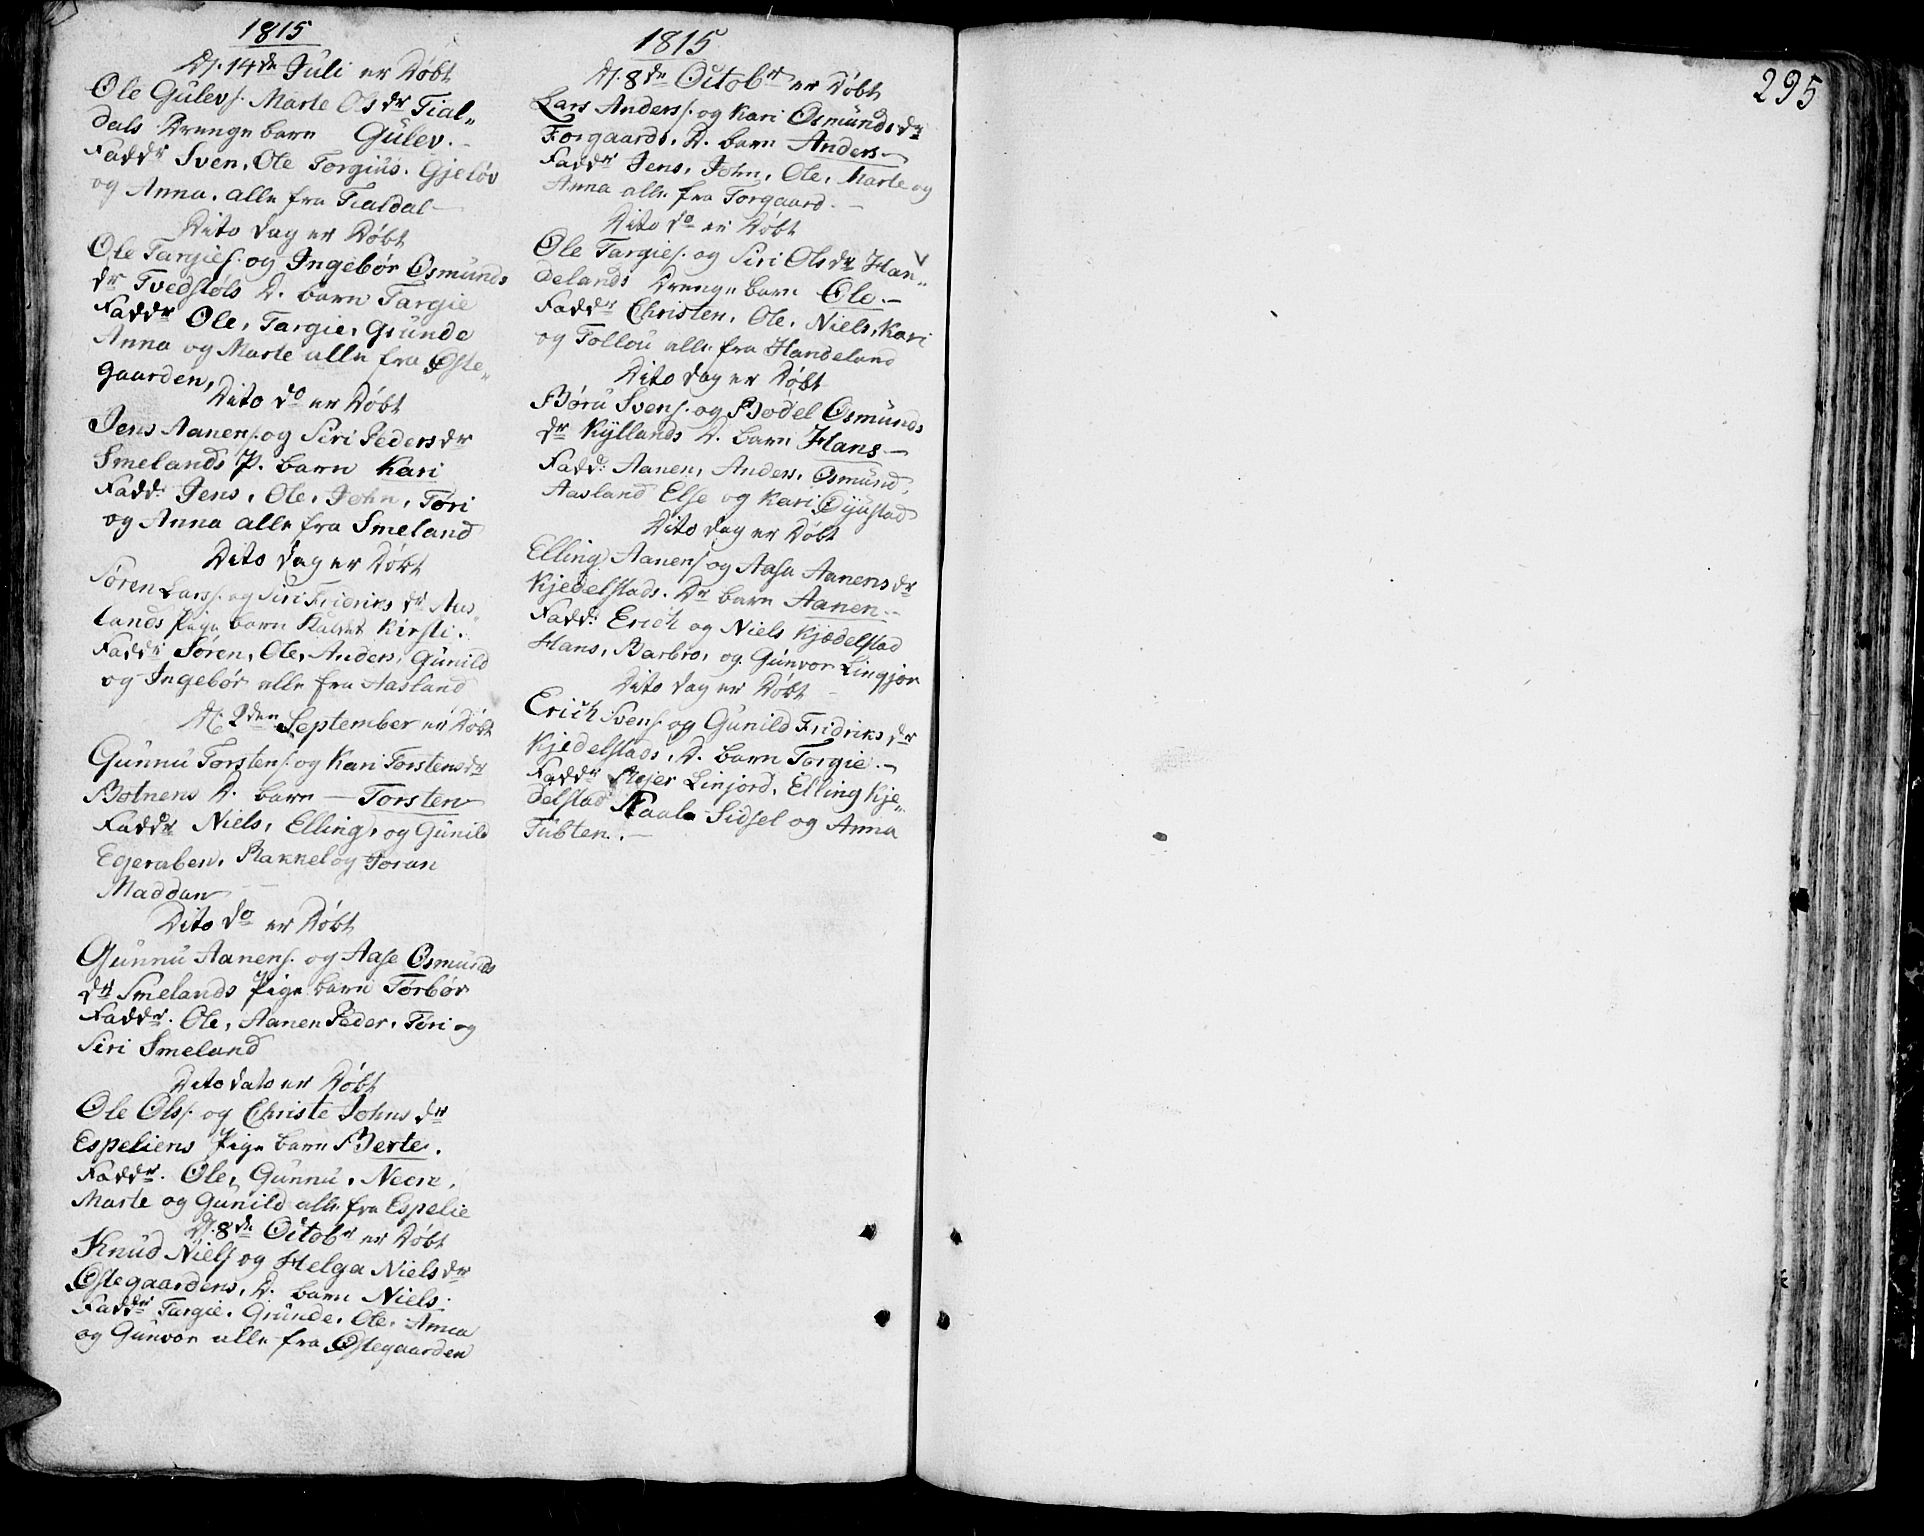 1815
D. 14de Juli er Døbt
Ole Gulevs. Marte Olsdr Tial„
dals Drenge barn Gulev.
Faddr Sven, Ole Torgius. Gjeløv
og Anna. alle fra Tialdal
Dito dag er Døbt
Ole Targies. og Ingebør Osmunds
dr Tvedstøls D. barn Targie
Faddr Ole, Targie, Grunde
Anna og Marte alle fra Øste„
gaarden,
Dito do er Døbt
Jens Aanens. og Siri Peders dr
Smelands P. barn Kari
Fadd: Jens, Ole, John, Tøri
og Anna alle fra Smeland
Dito dag er Døbt
Søren Larss. og Siri Fridriks dr Aas„
lands Pige barn Kaldet Kirsti.
Faddr Søren, Ole, Anders, Gunild
og Ingebør alle fra Aasland
D. 2den September er Døbt
Gunnu Torstens. og Kari Torstensdr
Botnens D. barn — Torsten
Faddr Niels, Elling, og Gunild
Egeraben, Rakkel og Joran
Maddan
Dito do er Døbt
Gunnu Aanens. og Aase Osmunds
dr Smelands Pige barn Tørbør
Faddr. Ole, Aanen Peder, Tøri og
Siri Smeland
Dito dato er Døbt
Ole Ols. og Christe Johns dr
Espeliens Pige barn Berte.
Faddr. Ole, Gunnu,
Marte og Gunild alle fra Espelie
D. 8de Octobr er Døbt
Knud Niels og Helga Niels dr
Østegaardens, D. barn Niels.
Faddr Targie. Grunde, Ole, Anna
og Gunvor alle fra Østegaarden
1815
D. 8de Octobr er Døbt
Lars Anderss. og Kari Osmunds dr
Torgaards. D. barn Anders
Faddr Jens, John, Ole, Marte og
Anna alle fra Torgaard.
Dito do er Døbt
Ole Targies. og Siri Ols dr Han„
delands Drenge barn Ole.
Faddr Christen, Ole, Niels, Kari
og Tollou alle fra Handeland
Dito dag er Døbt
Børu Svens. og Bodel Osmunds
dr Kyllands D. barn Hans
Fadd: Aanen, Anders, Osmund,
Aasland Else og Kari Øyustad
Dito dag er Døbt
Elling Aanens. og Aasa Aanens dr
Kjedelstads. Dr barn Aanen
Fadd: Erich og Niels Kjædelstad
Hans, Barbro, og Gunvor Lingjor
Dito dag er Døbt
Erich Svens. og Gunild Fridriks dr
Kjedelstads, D. barn Torgie.
Faddr Rejer Linjord, Elling Kje„
delstad Staale Sidsel og Anna
Tubten.
295